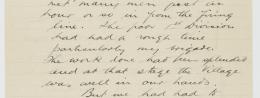 met many men post an
hour or so in from the firing
line. The poor 1st Division
had had a rough time
particularly my brigade.
The work done had been splendid
and at that stage the village
was well in our hands.
But we had had to